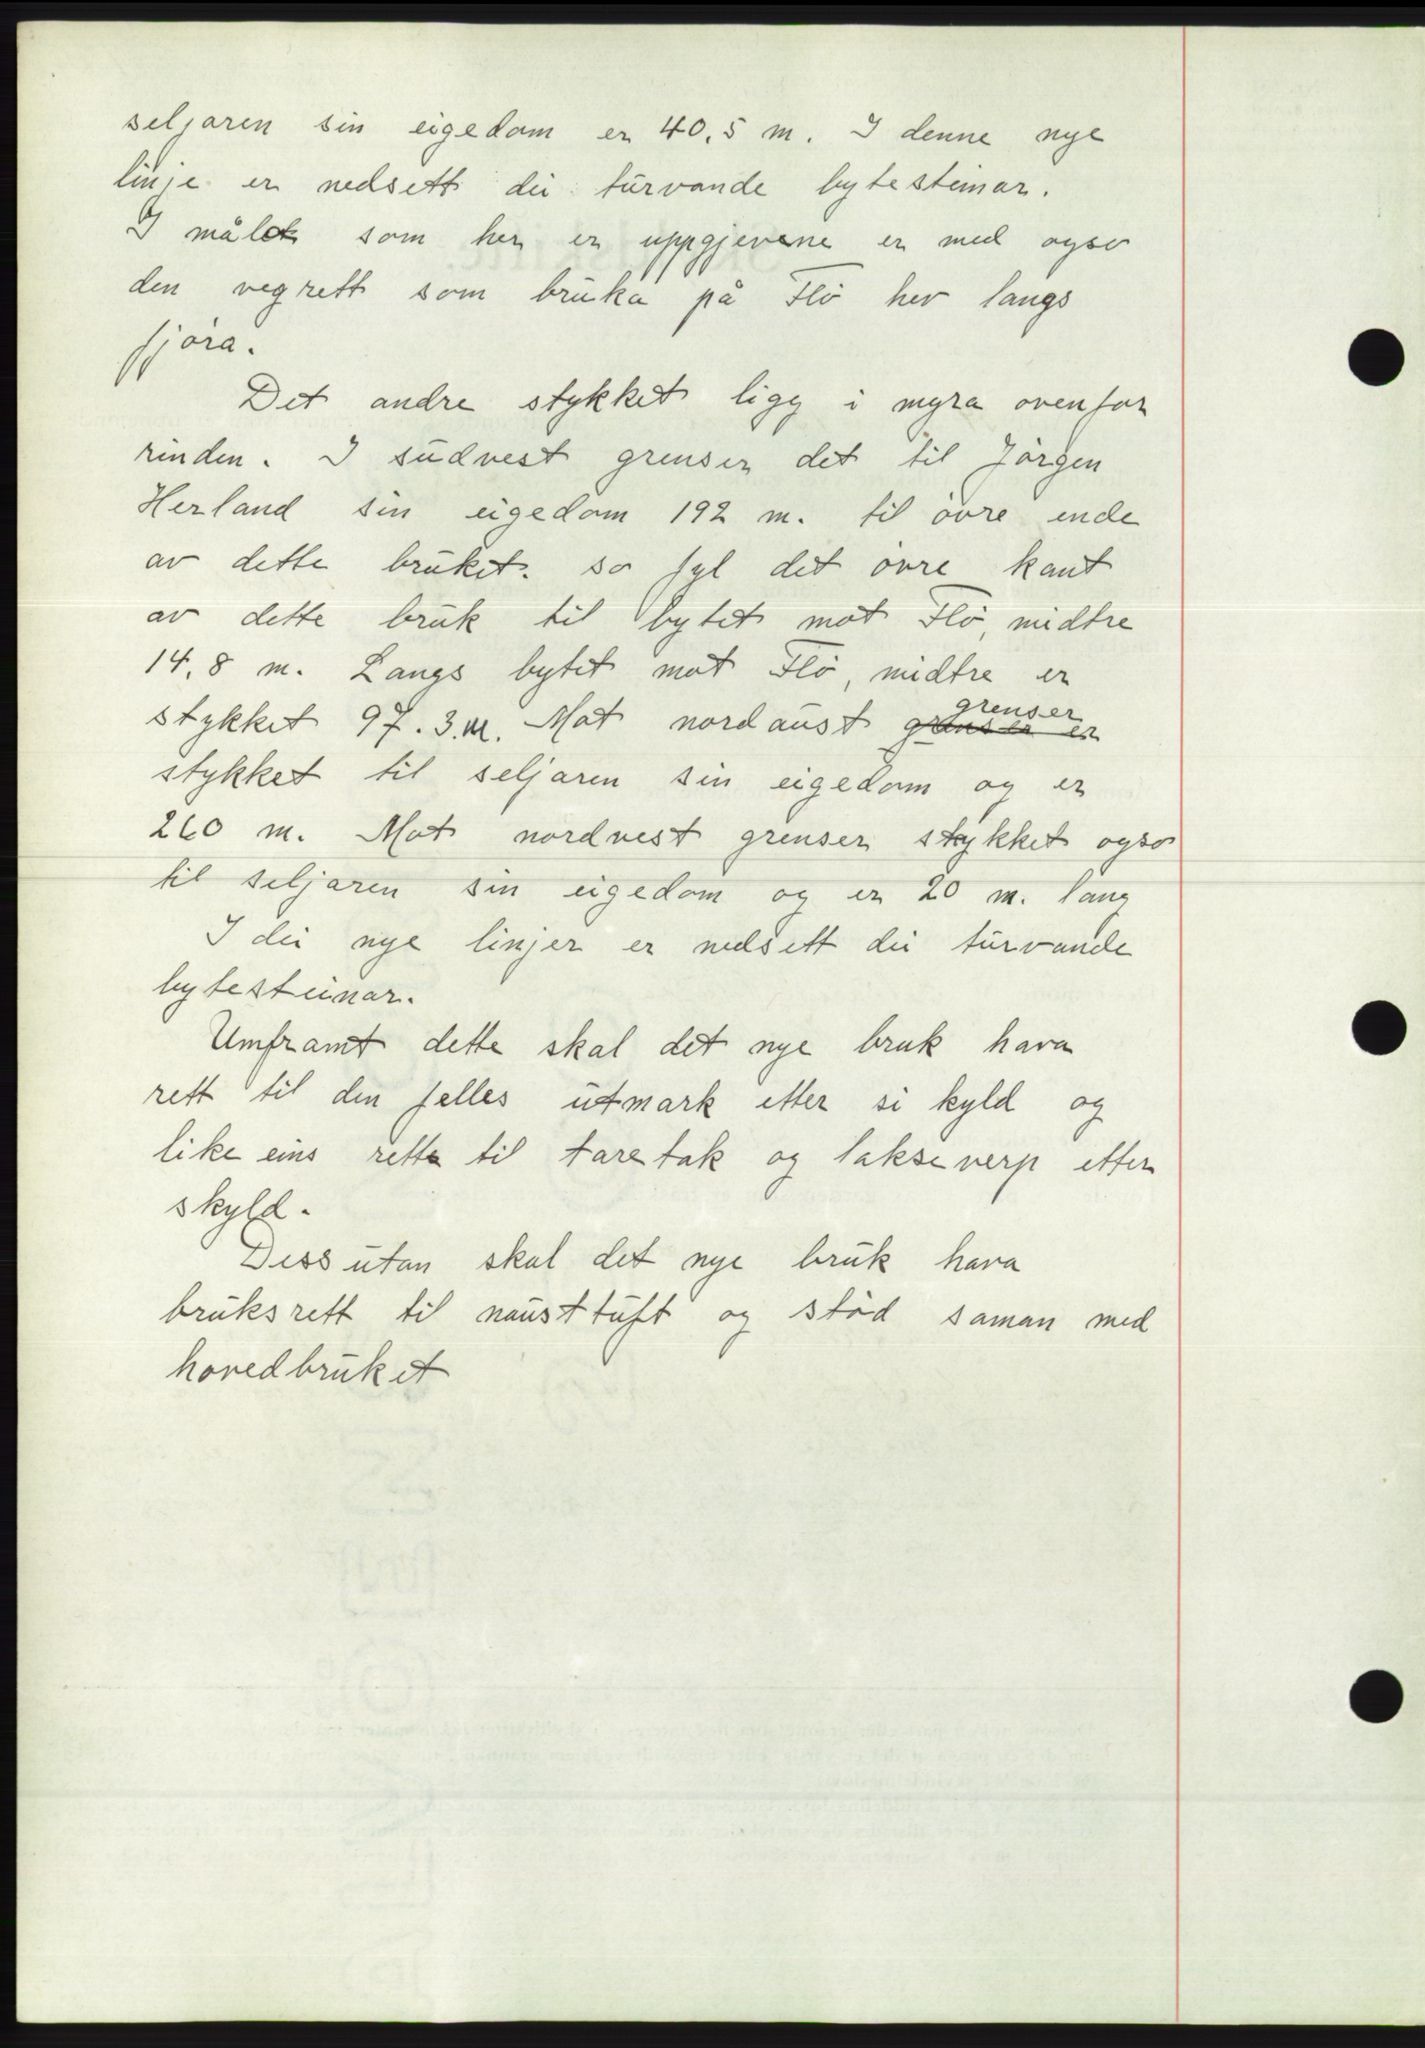 seljaren sin eigedom er 40,5 m. I denne nye
linje er nedsett dei turvande bytesteinar.
I målet som her er uppgjevene er med ogso
den vegrett som bruka på Flö hev langs
fjöra.
Det andre stykket ligg i myra ovenfor
rinden. I sudvest grenser det til Jörgen
Herland sin eigedom 192 m. til övre ende
av dette bruket. so fyl det övre kant
av dette bruk til bytet mot Flö, midtre
14,8 m. Langs bytet mot Flö, midtre er
stykket 97.3.m. Mot nordaust grenser
stykket til seljaren sin eigedom og er
260 m. Mot nordvest grenser stykket ogso
til seljaren sin eigedom og er 20 m. lang
I dei nye linjer er nedsett dei turvande
bytesteinar.
Umframt dette skal det nye bruk hava
rett til den felles utmark etter si kyld og
like eins rett til taretak og lakseverp etter
skyld.
Dess utan skal det nye bruk hava
bruksrett til nausttuft og stöd saman med
hovedbruket